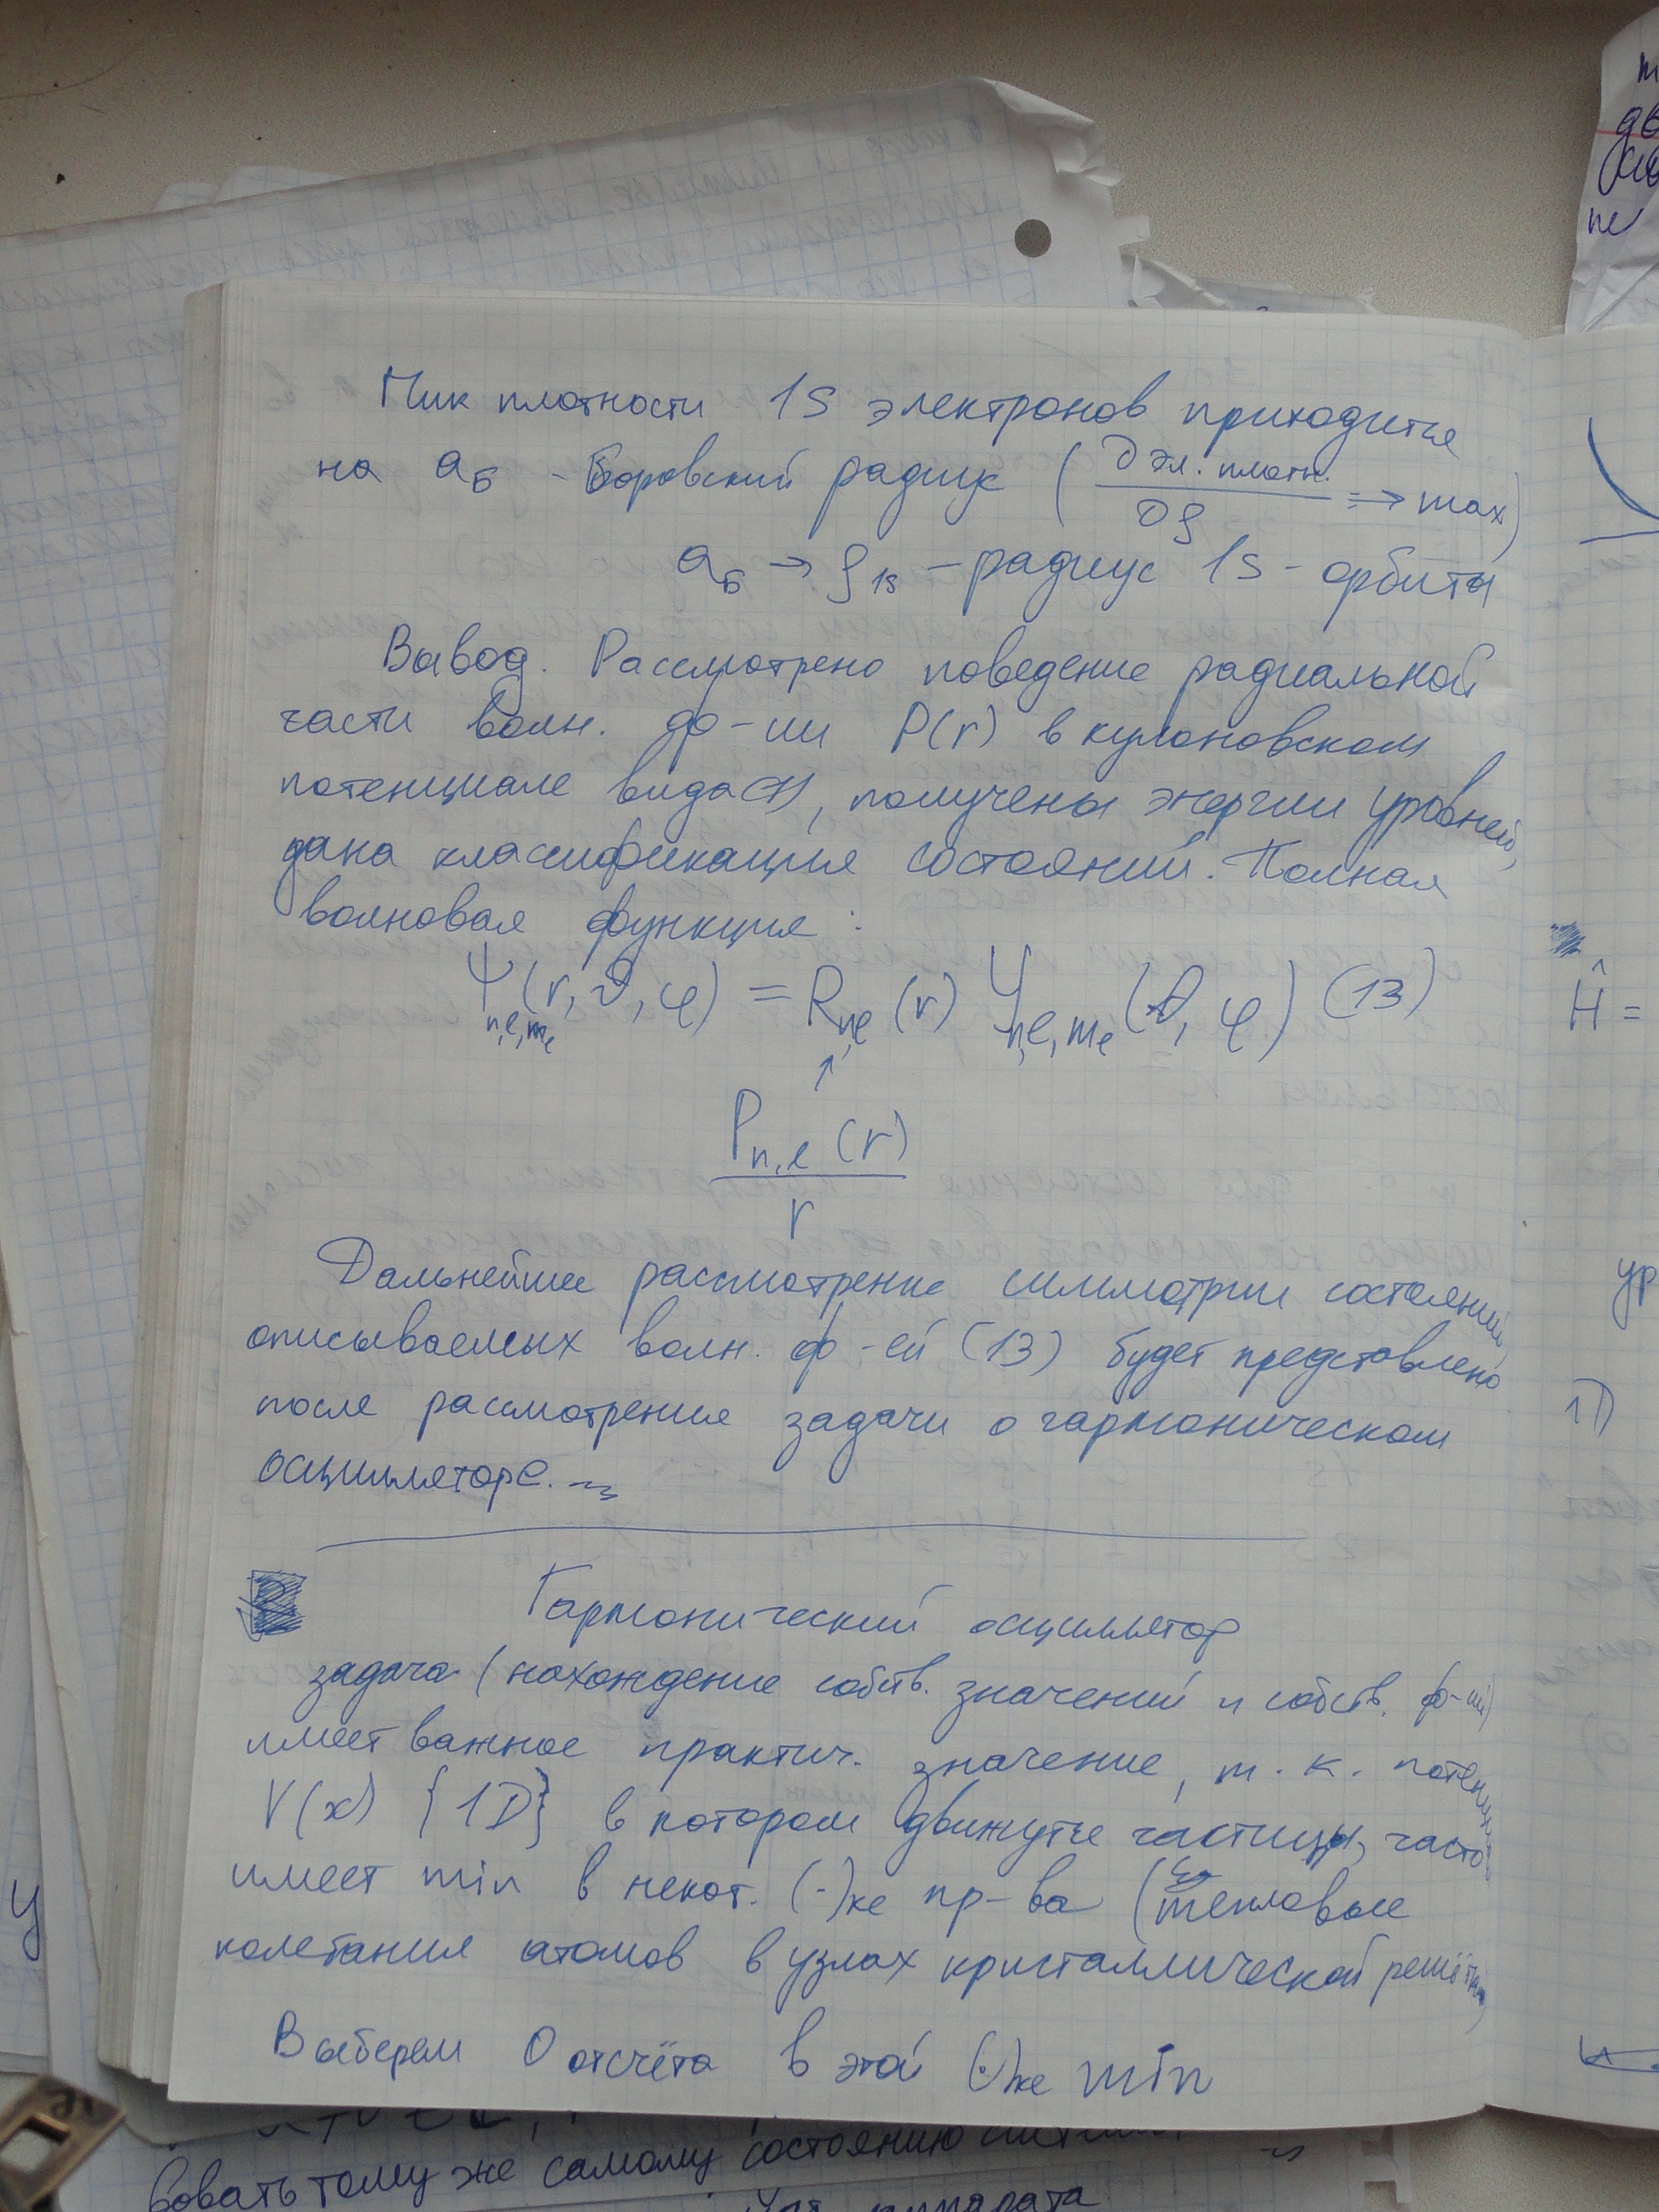 Пик плотности 1S электронов приходится
на a_Б - боровский радиус ( ∂ эл. плотн. / ∂ρ => max)
a_Б → ρ_1s - радиус 1s - орбиты
Вывод. Рассмотрено поведение радиальной
части волн. ф-ии P(r) в кулоновском
потенциале вида (1), получены энергии уровней,
дана классификация состояний. Полная
волновая функция :
Ψ_n,l,m_l (r, ϑ, φ) = R_n,l (r) Y_n,l,m_l (ϑ, φ) (13)
↑
P_n,l (r)
r
Дальнейшее рассмотрение симметрии состояний,
описываемых волн. ф-ей (13) будет представлено
после рассмотрения задачи о гармоническом
осцилляторе.
Гармонический осциллятор
задача (нахождение собств. значений и собств. ф-ий)
имеет важное практич. значение, т. к. потенциал
V(x) {1D} в котором движутся частицы, часто
имеет min в некот. (·)ке пр-ва (тепловые
колебания атомов в узлах кристаллической решётки)
Выберем 0 отсчёта в этой (·)ке min
Ĥ =
ур
1)
у
вовать тому же самому состоянию
аппарата